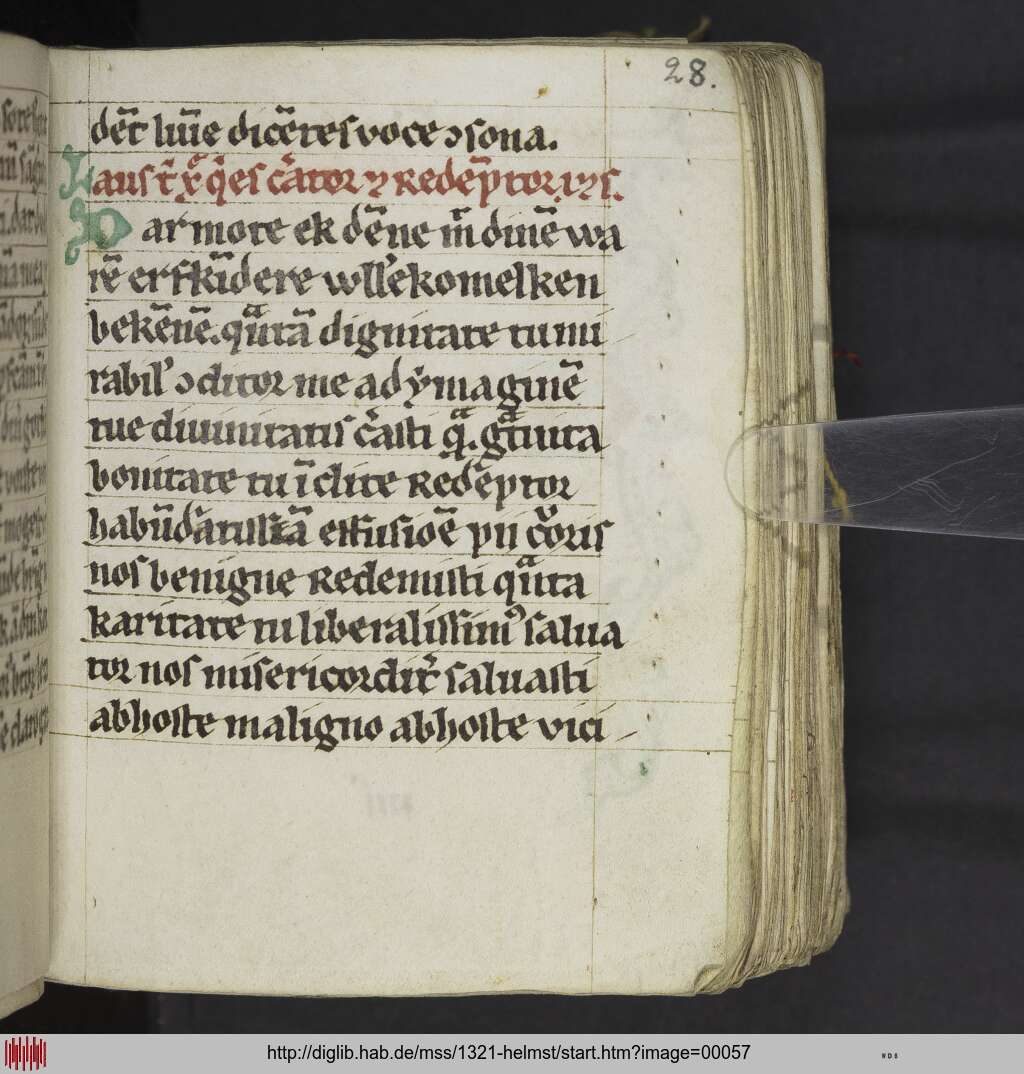 28.
dēt lūīe dicētes voce ɔsona.
Laus t̄ xp̄ q̄ es c̄ator ⁊ Redēptor
Dar mote ek dēne m̄ dinē wa
rē erfkīdere wllekomelken
bekēnē. qͣtā dignitate tu mi
rabilʼ ɔditor me ad ẏmaginē
tue diuinitatis c̄asti qͣ. gͣtuita
bonitate tu īclite Redēptor
habūdātissīā effusiōe pii c̄oris
nos benigne Redemisti qͣnta
karitate tu liberalissimꝰ salua
tor nos misericordit̄ saluasti
ab hoste maligno ab hoste vici
http://diglib.hab.de/mss/1321-helmst/start.htm?image=00057